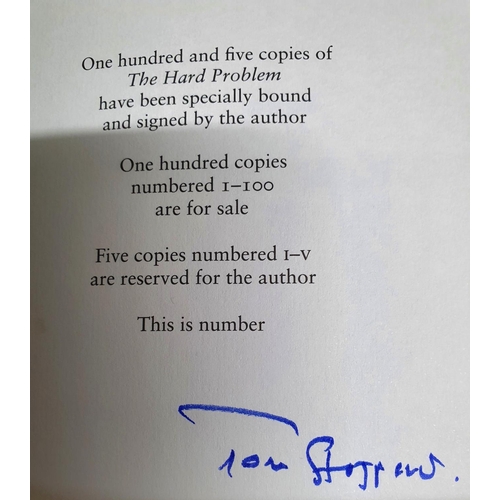 One hundred and five copies of
The Hard Problem
have been specially bound
and signed by the author
One hundred copies
numbered 1–100
are for sale
Five copies numbered I–V
are reserved for the author
This is number
Tom Stoppard.